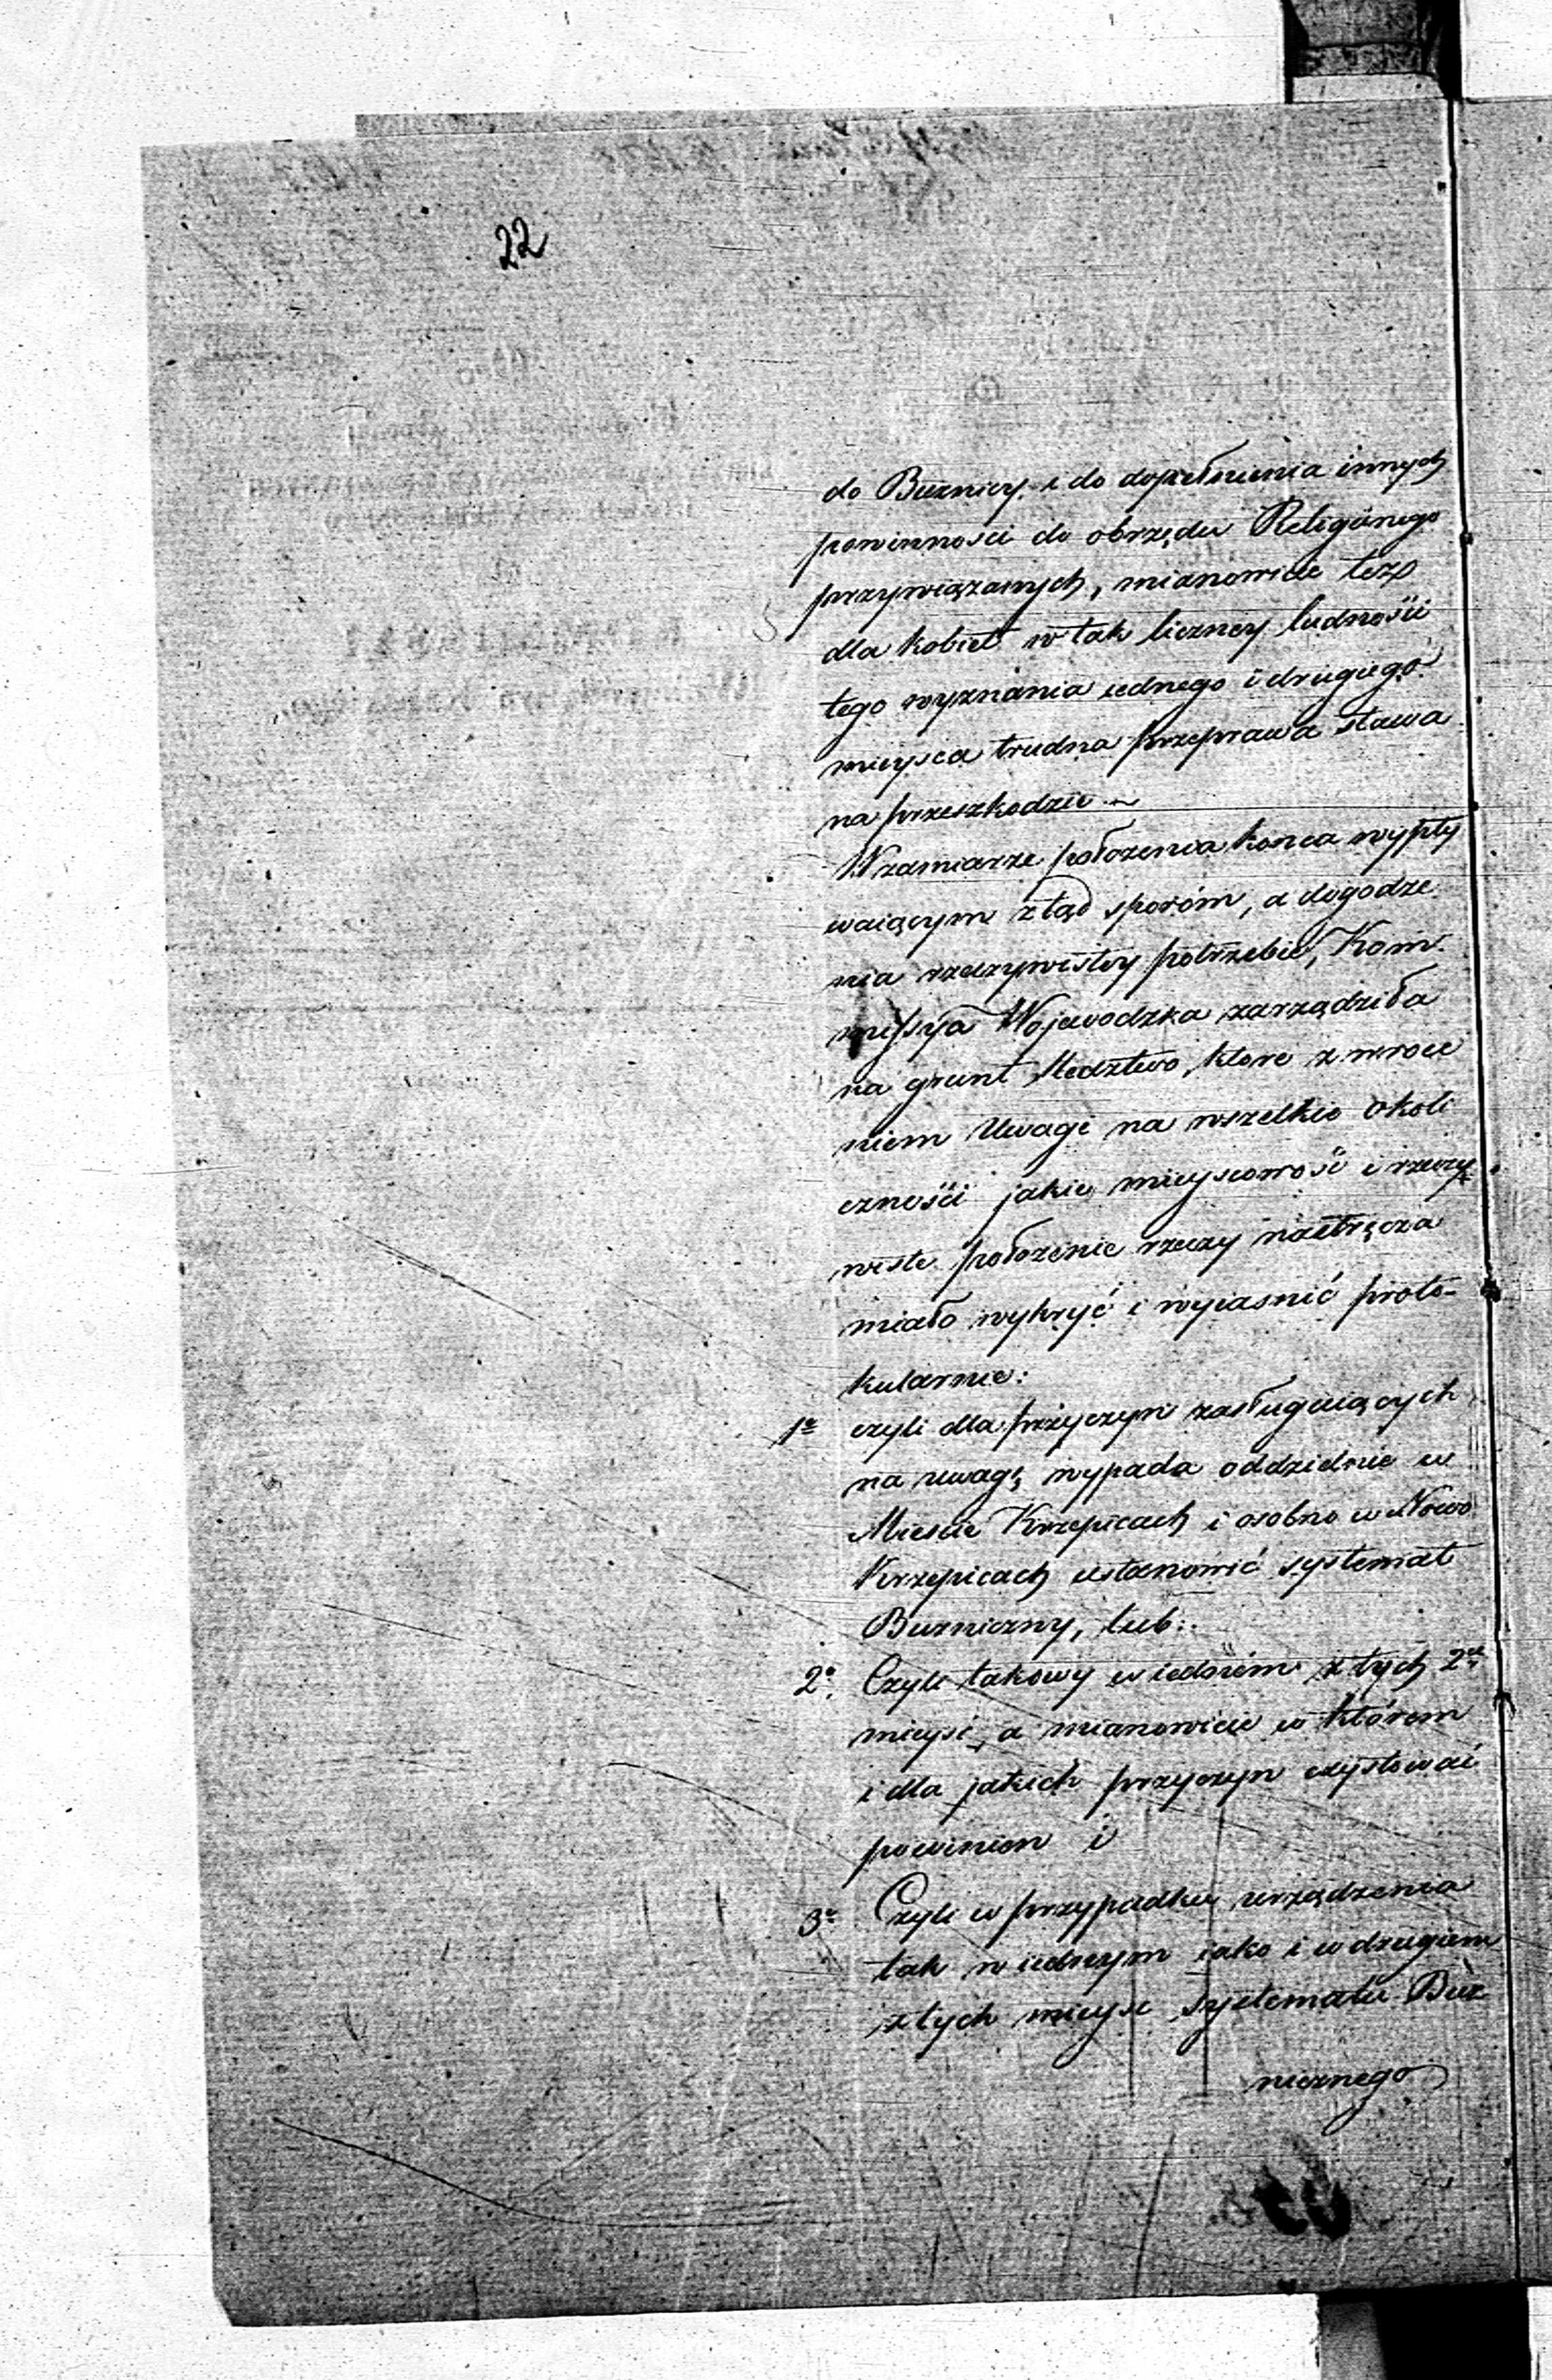 22
do Buznicy i do dopełnienia innych
powinnosci do obrzędu Religiinego
przywiązanych, mianowicie też
dla kobiet w tak liczney ludności
tego wyznania iednego i drugiego
mieysca trudna przeprawa stawa
na przeszkodzie
W zamiarze położenia konca wypły
waiącym ztąd sporóm, a dogodze
nia rzeczywistey potrzebie, Kom-
missya Wojewodzka zarządziła
na grunt śledztwo, ktore z zwroce
niem Uwagi na wszelkie okoli
czności jakie mieyscowość i rzeczy
wiste położenie rzeczy nastręcza
miało wykryć i wyiasnić proto-
kularnie:
1o czyli dla przyczyn zasługuiących
na uwagę wypada oddzielnie w
Miescie Krzepicach i osobno w Nowo
Krzepicach ustanowić systemat
Buzniczny, lub:
2o Czyli takowy w iednem z tych 2ch
mieysc, a mianowicie w którem
i dla jakich przyczyn exystować
powinien i
3o Czyli w przypadku urządzenia
tak w iednym iako i w drugiem
z tych mieysc systematu Buz
nicznego